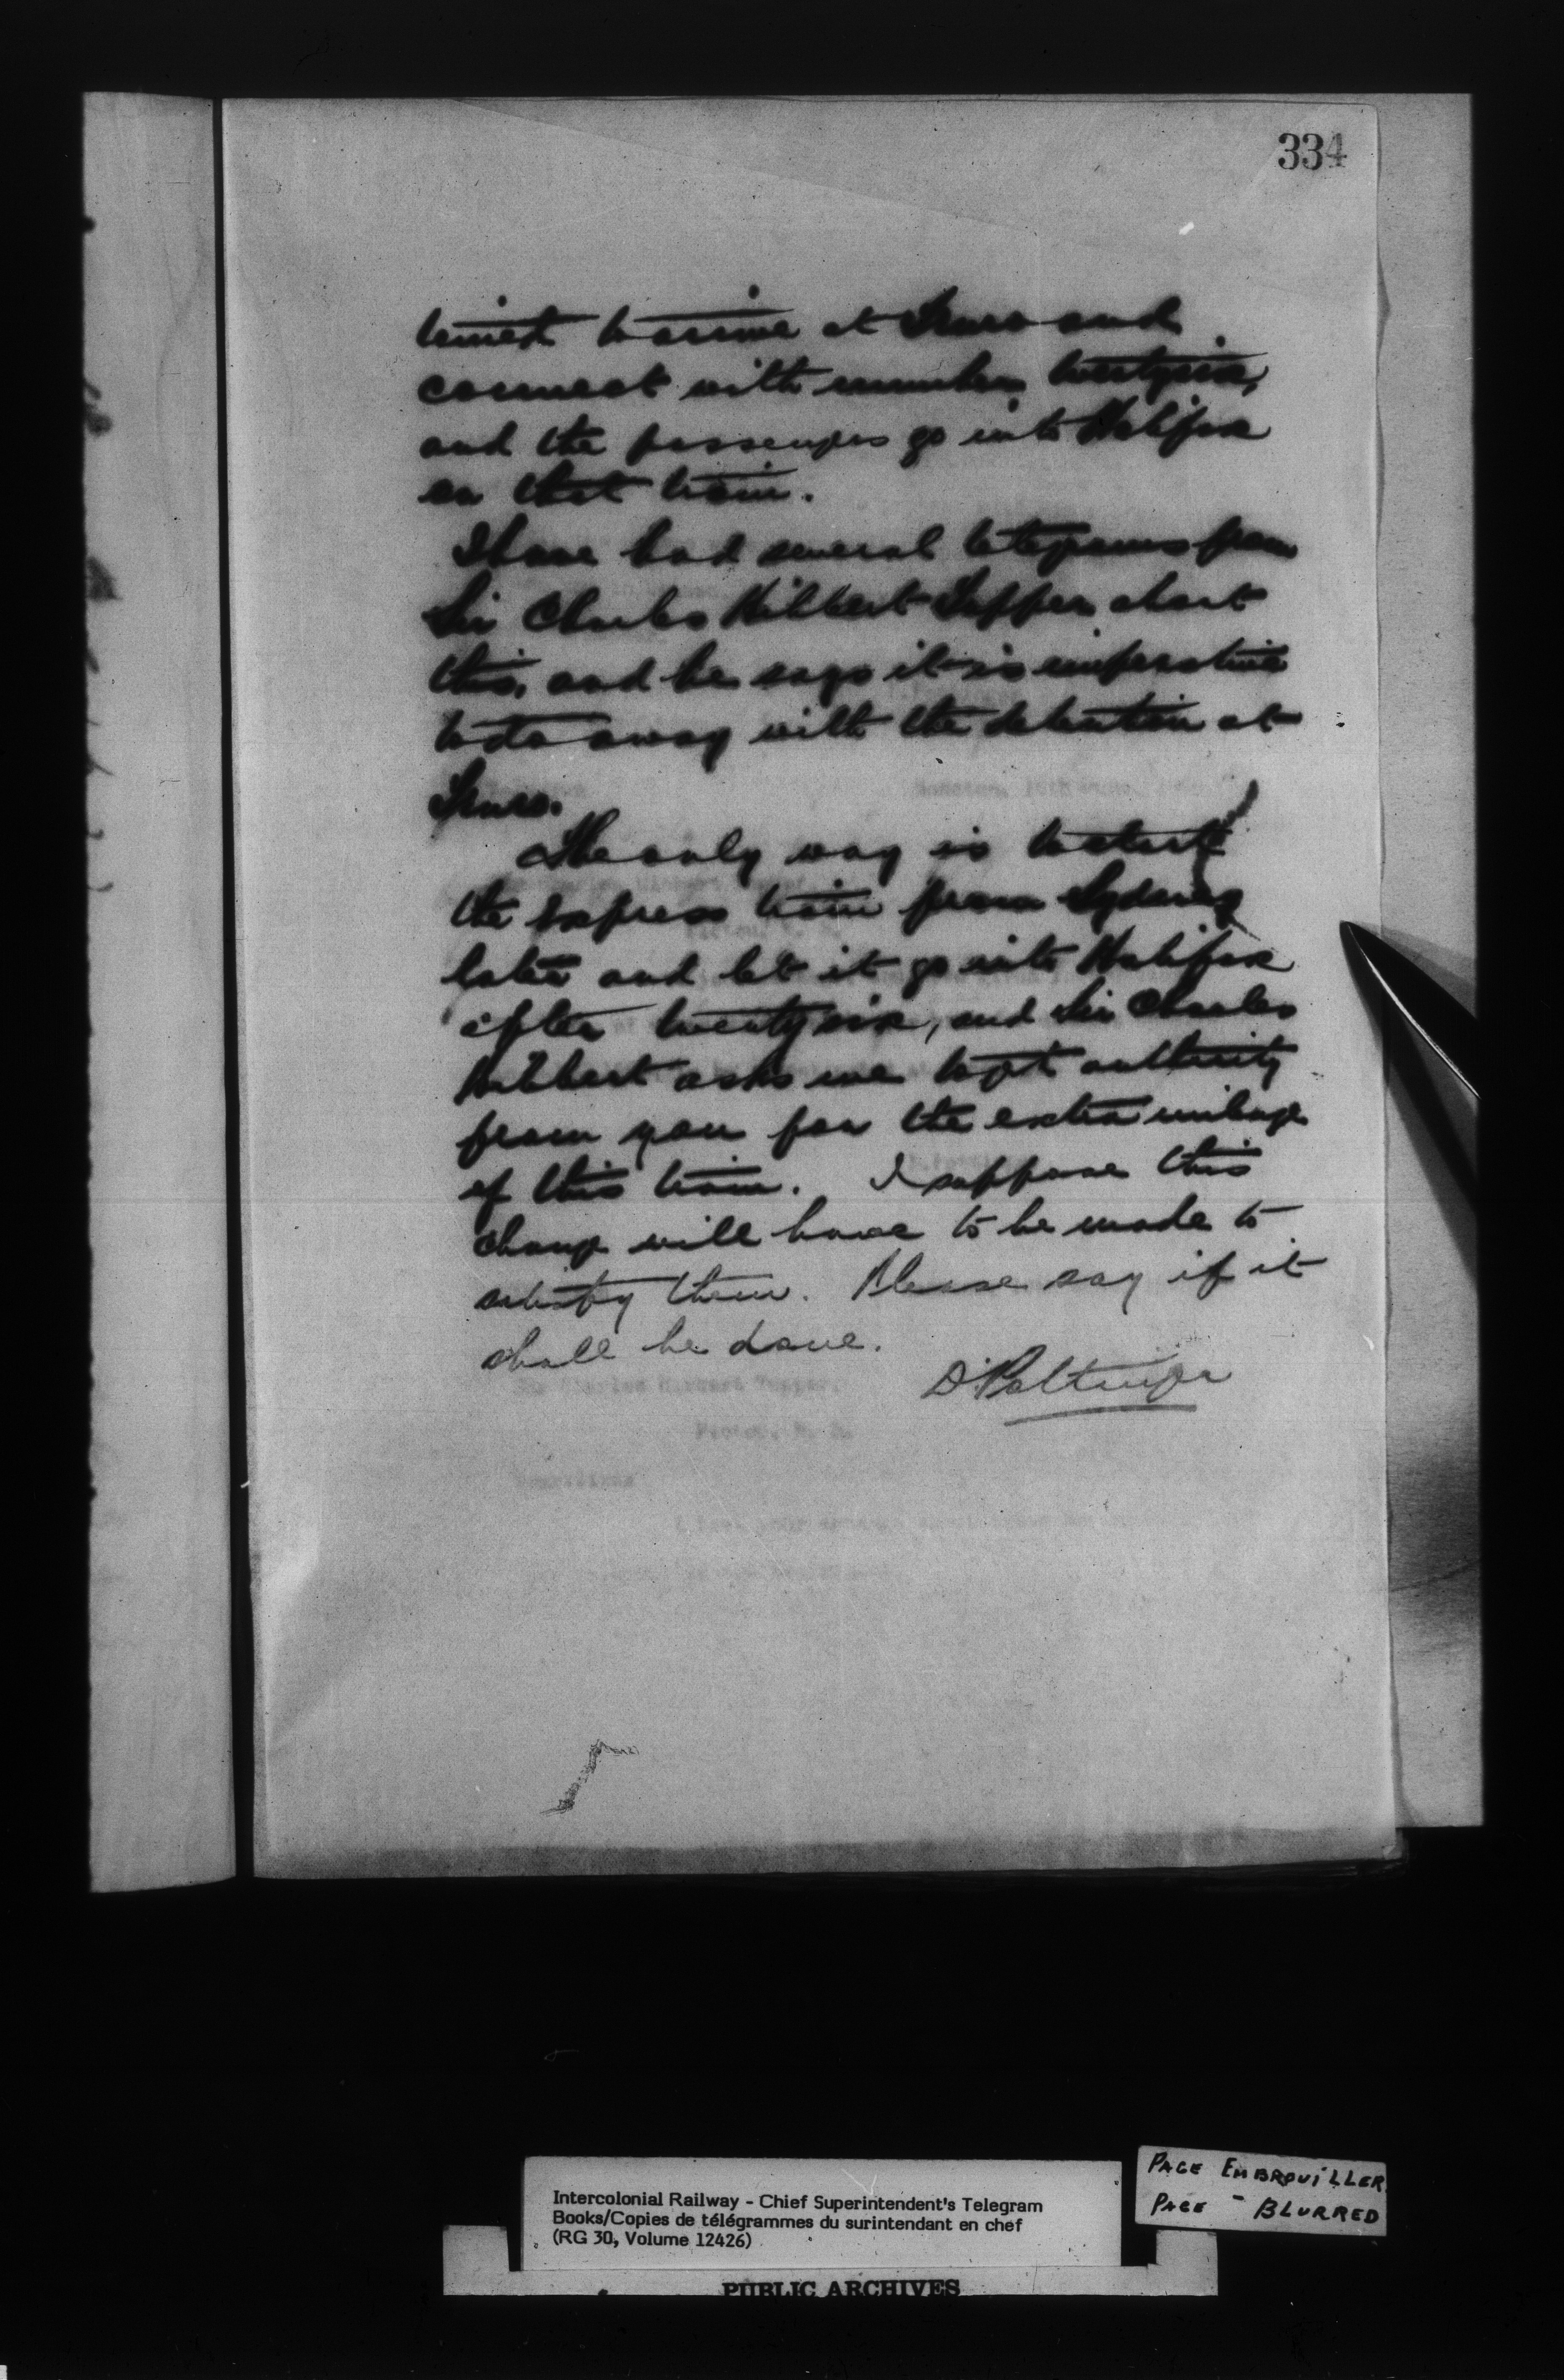 334
timed to arrive at Truro and
connect with number twentysix,
and the passengers go into Halifax
on that train.
I have had several telegrams from
Sir Charles Hibbert Tupper about
this, and he says it is imperative
to do away with the detention at
Truro.
The only way is to start
the express train from Sydney
later and let it go into Halifax
after twenty six, and Sir Charles
Hibbert asks me to get authority
from you for the extra mileage
of this train. I suppose this
change will have to be made to
satisfy them. Please say if it
shall be done.
D Pottinger
Sir Charles Hibbert Tupper,
Pictou, N. S.
Intercolonial Railway - Chief Superintendent's Telegram
Books/Copies de télégrammes du surintendant en chef
(RG 30, Volume 12426)
PAGE EMBROUILLER
PAGE - BLURRED
PUBLIC ARCHIVES